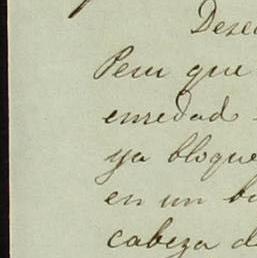 Dese
Peru que
enredad
ya bloque
en un b
cabeza d